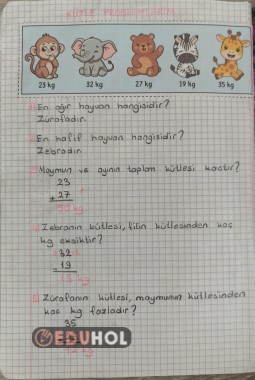 KÜTLE PROBLEMLERİM
23 kg 32 kg 27 kg 19 kg 35 kg
1) En ağır hayvan hangisidir?
Zürafadır.
2) En hafif hayvan hangisidir?
Zebradır.
3) Maymun ve ayının toplam kütlesi kaçtır?
23
+ 27
50 kg
4) Zebranın kütlesi, filin kütlesinden kaç
kg eksiktir?
32
- 19
13 kg
5) Zürafanın kütlesi, maymunun kütlesinden
kaç kg fazladır?
35
EDUHOL
12 kg